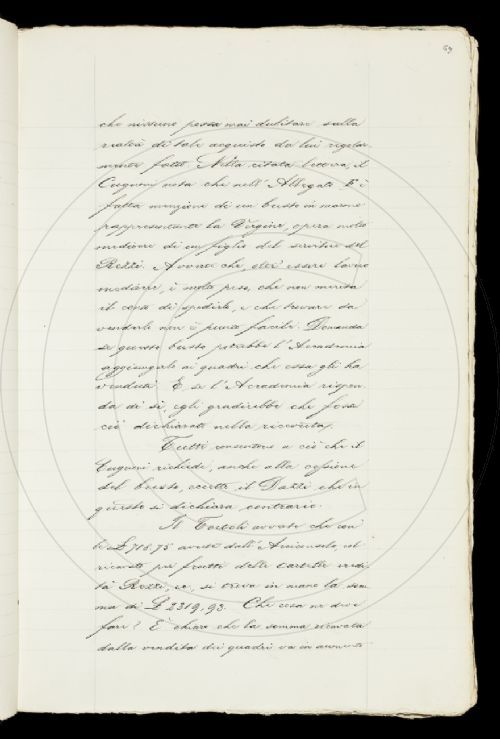 69
che nessuno possa mai dubitare sulla
realtà di tale acquisto da lui regolar
mente fatto. Nella citata lettera, il
Cugnoni nota che nell'Allegato E è
fatta menzione di un busto in marmo
rappresentante la Vergine, opera molto
mediocre di un figlio del servitore del
Rezzi. Avverte che, oltre essere lavoro
mediocre, è molto peso, che non merita
il conto di spedirlo, e che trovare da
venderlo non è punto facile. Domanda
se questo busto potrebbe l'Accademia
aggiungerlo ai quadri che essa gli ha
venduti. E se l'Accademia rispon
da di sì, egli gradirebbe che fosse
ciò dichiarato nella ricevuta.
Tutti consentono a ciò che il
Cugnoni richiede, anche alla cessione
del busto, eccetto il Dazzi, che in
questo si dichiara contrario.
Il Tortoli avverte che con
le £ 716,75 avute dall'
ricavate pei frutti delle cartelle eredi
tà Rezzi, ec, si trova in mano la som
ma di £ 2319,93. Che cosa ne deve
fare? È chiaro che la somma ricavata
dalla vendita dei quadri va in aumento